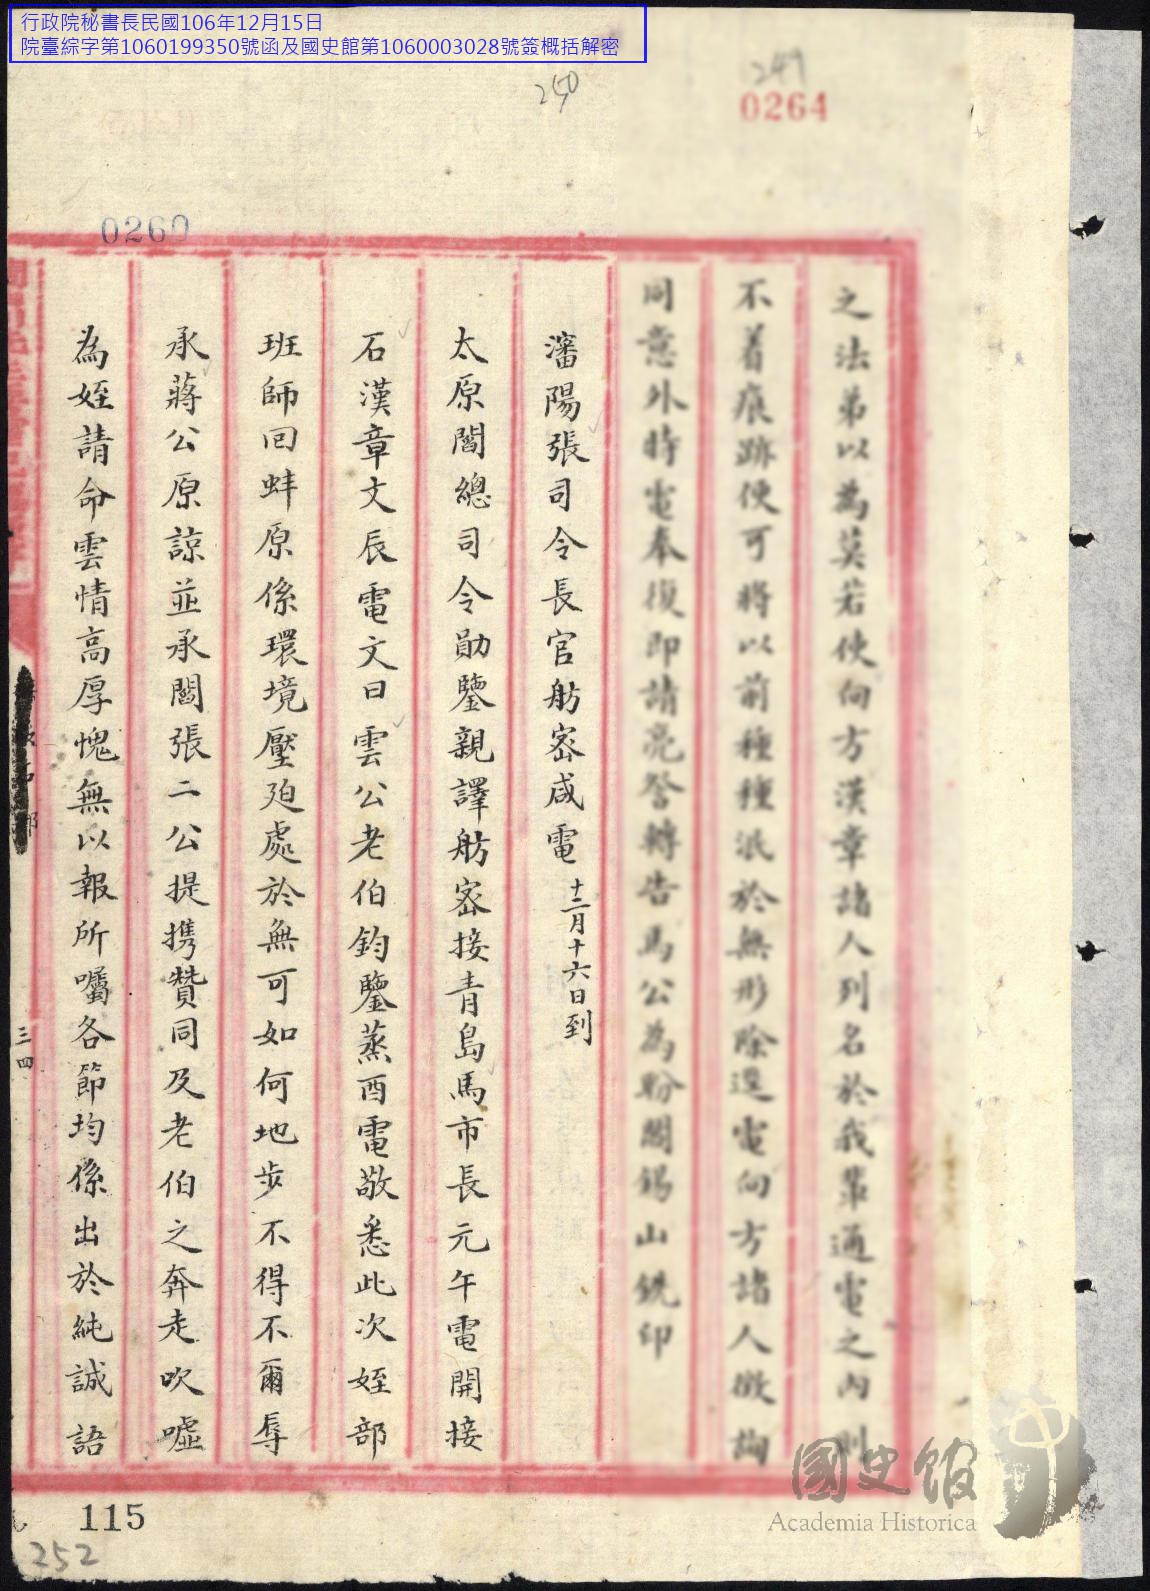 行政院秘書長民國106年12月15日
院臺綜字第1060199350號函及國史館第1060003028號簽概括解密
249
0264
250
0260
之法弟以為莫若使向方漢章諸人列名於我輩通電之內則
不着痕跡便可將以前種種泯於無形除逕電向方諸人徵詢
同意外特電奉復即請亮詧轉告馬公為盼閻錫山銑印
瀋陽張司令長官舫密咸電十二月十六日到
太原閻總司令勛鑒親譯舫密接青島馬市長元午電開接
石漢章文辰電文曰雲公老伯鈞鑒蒸酉電敬悉此次姪部
班師回蚌原係環境壓廹處於無可如何地步不得不爾辱
承蔣公原諒並承閻張二公提携贊同及老伯之奔走吹噓
為姪請命雲情高厚愧無以報所囑各節均係出於純誠語
三四
115
252
國史館
Academia Historica